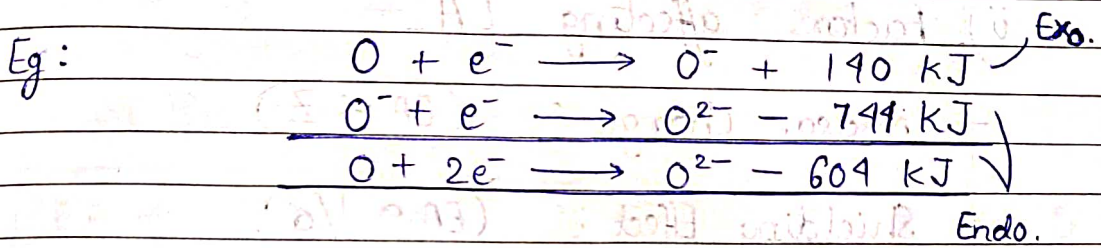 Exo.
Eg: O + e⁻ → O⁻ + 140 kJ
O⁻ + e⁻ → O²⁻ − 744 kJ
O + 2e⁻ → O²⁻ − 604 kJ
Endo.